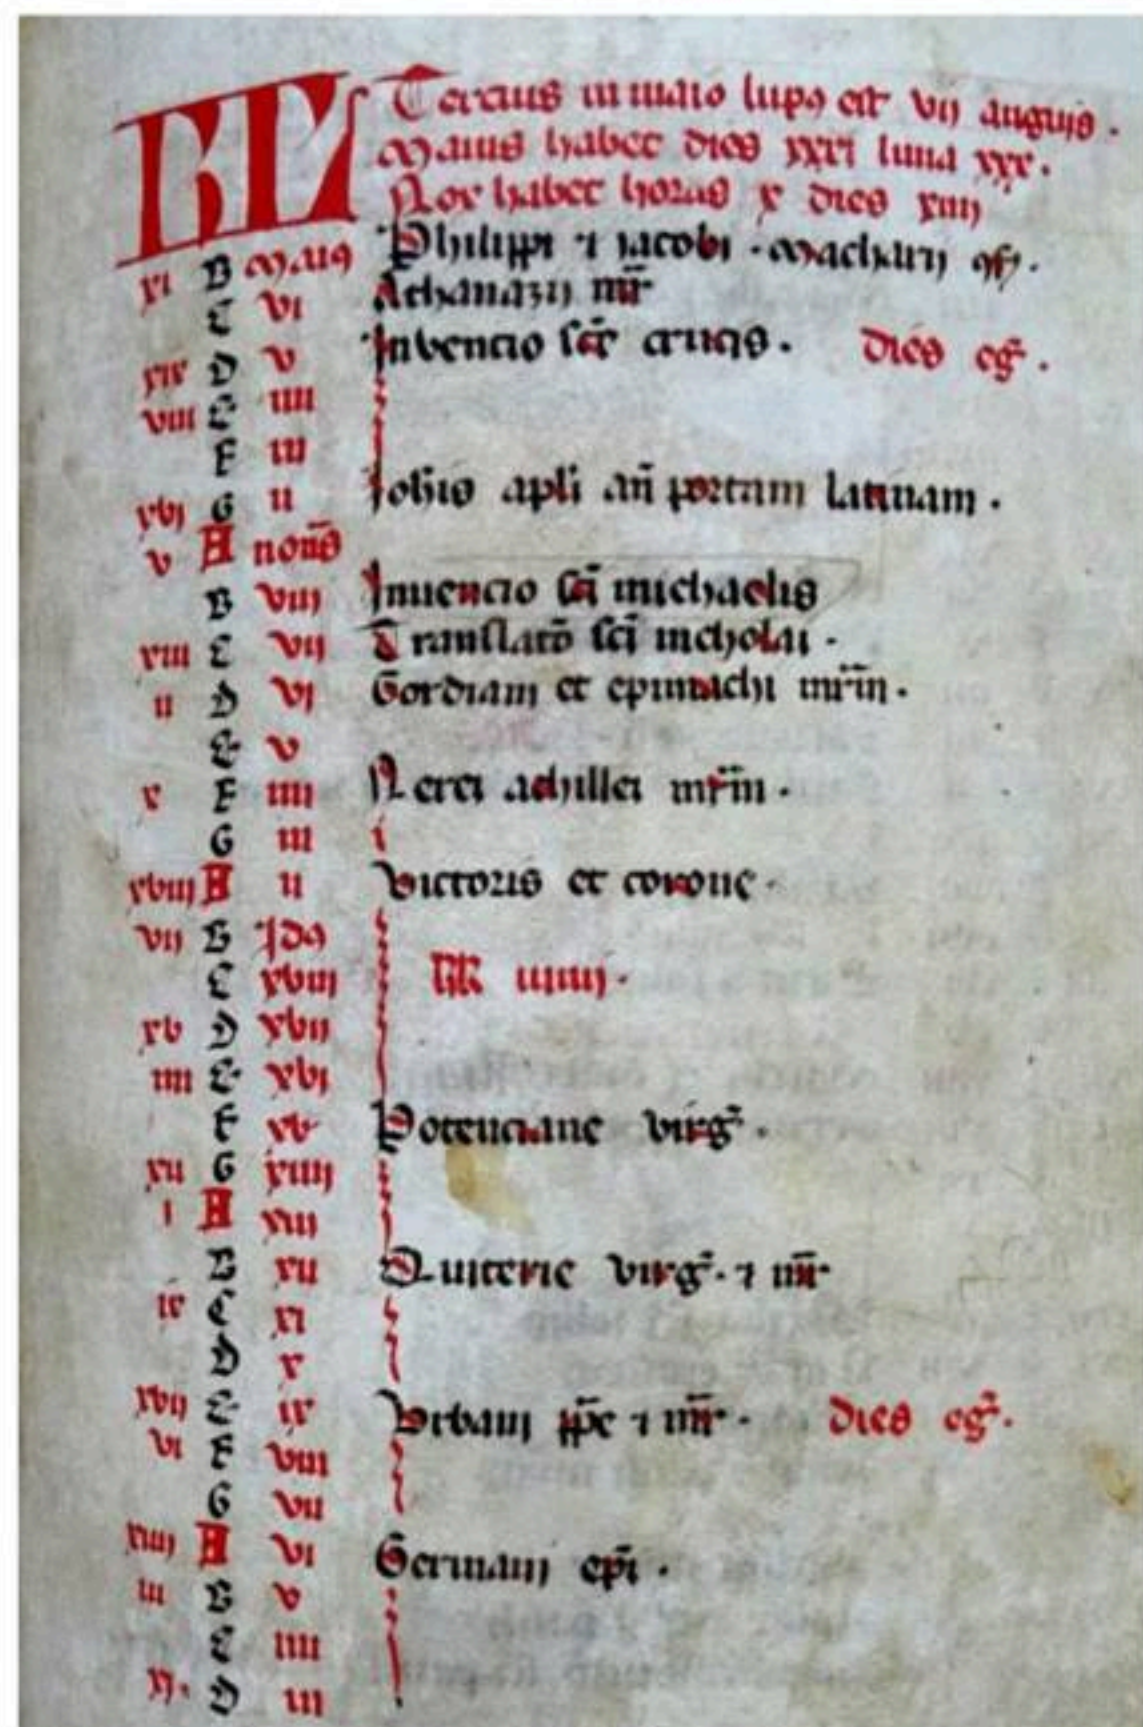 KL Tercius in maio lupus est vij anguis.
Maius habet dies xxxi luna xxx.
Nox habet horas x dies xiiij
xi B Maius Philippi et iacobi. Macharij
C vi Athanazij mr
xix D v Invencio sce crucis. dies eg.
viii E iiii
F iii
xvj G ii Johis apli an portam latinam.
v A nonas
B viij Inuencio sci michaelis
xiii C vij Translato sci nicholai.
ii D vj Gordiani et epimachi mrm.
E v
x F iiii Nerei achillei mrm.
G iii
xviij A ii Victoris et corone.
vij B Idus
C xviij KL iunij.
xv D xvii
iiii E xvi
F xv Potenciane virg.
xii G xiiij
i A xiii
B xii Quiterie virg. et mr
ix C xi
D x
xvij E ix Vrbani ppe et mr. dies eg.
vi F viii
G vii
xiiij A vi Germani epi.
iii B v
C iiii
xj. D iii